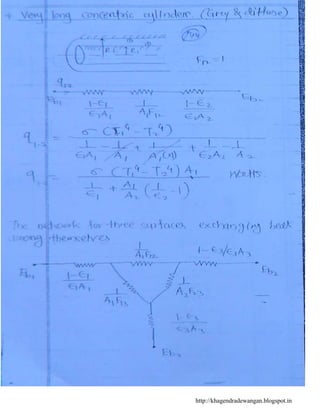 * Very long concentric cylinders. (Grey & diffuse)
F₁₂ = 1
q₁₋₂
Eb₁
Eb₂
1-ε₁ / ε₁A₁
1 / A₁F₁₂
1-ε₂ / ε₂A₂
q₁₋₂ = σ (T₁⁴ - T₂⁴) / (1/ε₁A₁ - 1/A₁ + 1/A₁(x1) + 1/ε₂A₂ - 1/A₂)
q₁₋₂ = σ (T₁⁴ - T₂⁴) A₁ / (1/ε₁ + A₁/A₂ (1/ε₂ - 1)) Watts.
The network for three surfaces exchanging heat
among themselves
Eb₁
1-ε₁ / ε₁A₁
1 / A₁F₁₂
Eb₂
1 / A₁F₁₃
1 / A₂F₂₃
1-ε₃ / ε₃A₃
Eb₃
http://khagendradewangan.blogspot.in